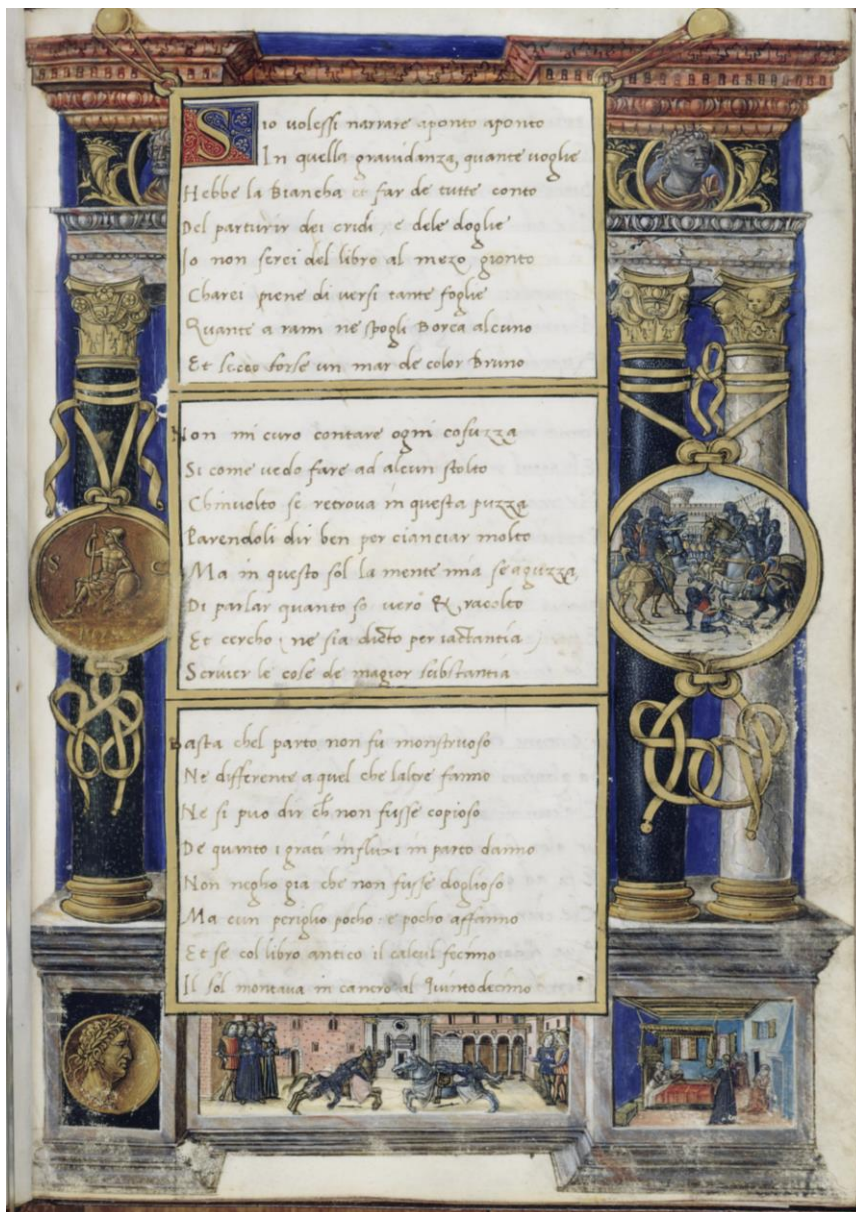 S io volessi narrare aponto aponto
In quella gravidanza, quante voglie
Hebbe la Biancha et far de tutte conto
Del parturir dei cridi, e dele doglie
Io non serei del libro al mezo gionto
Charei piene di versi tante foglie
Quante a rami ne spogli Borea alcuno
Et secco forse un mar de color Bruno
Non mi curo contare ogni cosuzza
Si come vedo fare ad alcun stolto
Chinvolto se retrova in questa puzza
Parendoli dir ben per cianciar molto
Ma in questo sol la mente mia se aguzza,
Di parlar quanto so vero & racolto
Et cercho (ne sia dicto per iactantia)
Scriver le cose de magior substantia
Basta chel parto non fu monstruoso
Ne differente a quel che laltre fanno
Ne si puo dir ch̄ non fusse copioso
De quanto i grati influxi in parto danno
Non negho gia che non fusse doglioso
Ma cun periglio pocho e pocho affanno
Et se col libro antico il calcul fecimo
Il sol montava in cancro al Quintodecimo
S C